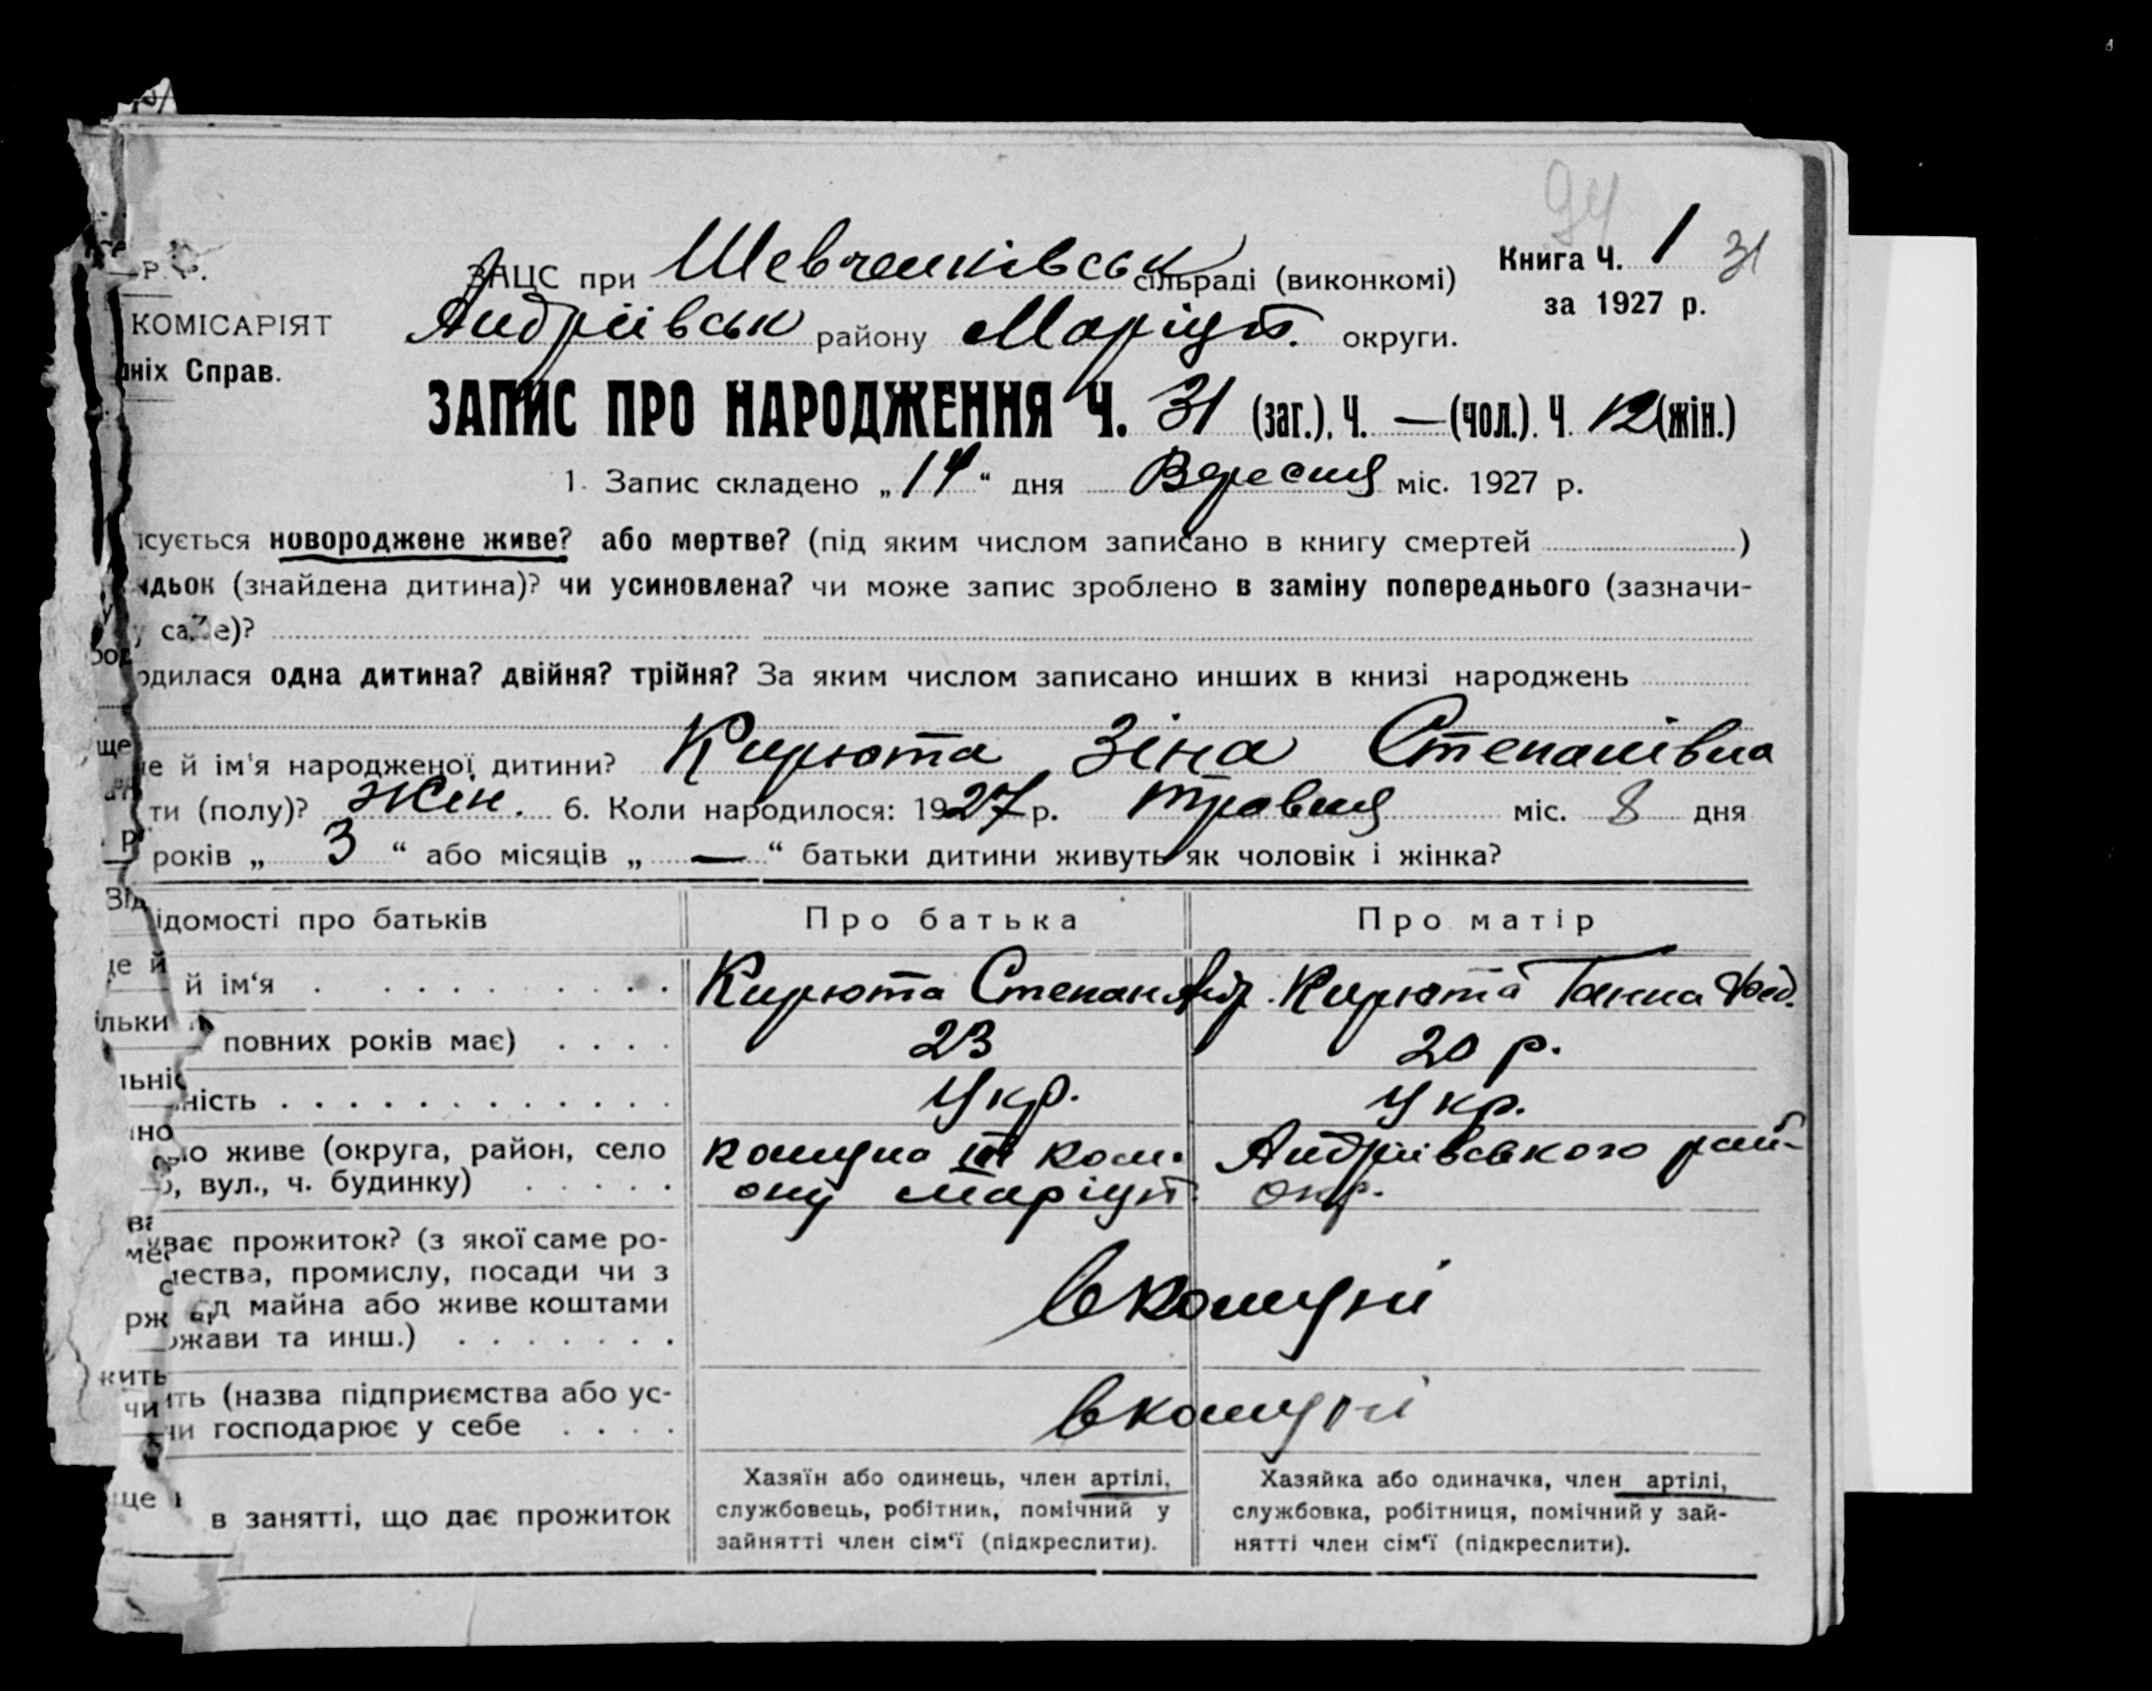 Р.
ЗАЦС при Шевченківськ сільраді (виконкомі)
Книга Ч. 1 31
94
за 1927 р.
КОМІСАРІЯТ
Андріївськ району Маріуп. округи.
ніх Справ.
ЗАПИС ПРО НАРОДЖЕННЯ Ч. 31 (заг.), Ч. — (чол.). Ч. 12 (жін.)
1. Запис складено „14“ дня Вересня міс. 1927 р.
сується новороджене живе? або мертве? (під яким числом записано в книгу смертей )
дьок (знайдена дитина)? чи усиновлена? чи може запис зроблено в заміну попереднього (зазначи-
у саме)?
одилася одна дитина? двійня? трійня? За яким числом записано инших в книзі народжень
е й ім'я народженої дитини? Кирюта Зіна Степанівна
ти (полу)? жін. 6. Коли народилося: 1927 р. травня міс. 8 дня
років „ 3 “ або місяців „ — “ батьки дитини живуть як чоловік і жінка?
ідомості про батьків Про батька Про матір
й ім‘я Кирюта Степан Андр. Кирюта Ганна Фед.
повних років має) 23 20 р.
ність Укр. Укр.
но живе (округа, район, село комуна III ком. Андріївського рай-
, вул., ч. будинку) ону Маріуп. окр.
ває прожиток? (з якої саме ро-
мества, промислу, посади чи з
д майна або живе коштами
ржави та инш.) в комуні
ить (назва підприємства або ус-
чи господарює у себе в комуні
Хазяїн або одинець, член артілі, службовець, робітник, помічний у зайнятті член сім‘ї (підкреслити).
Хазяйка або одиначка, член артілі, службовка, робітниця, помічний у зай-
нятті член сім‘ї (підкреслити).
в занятті, що дає прожиток